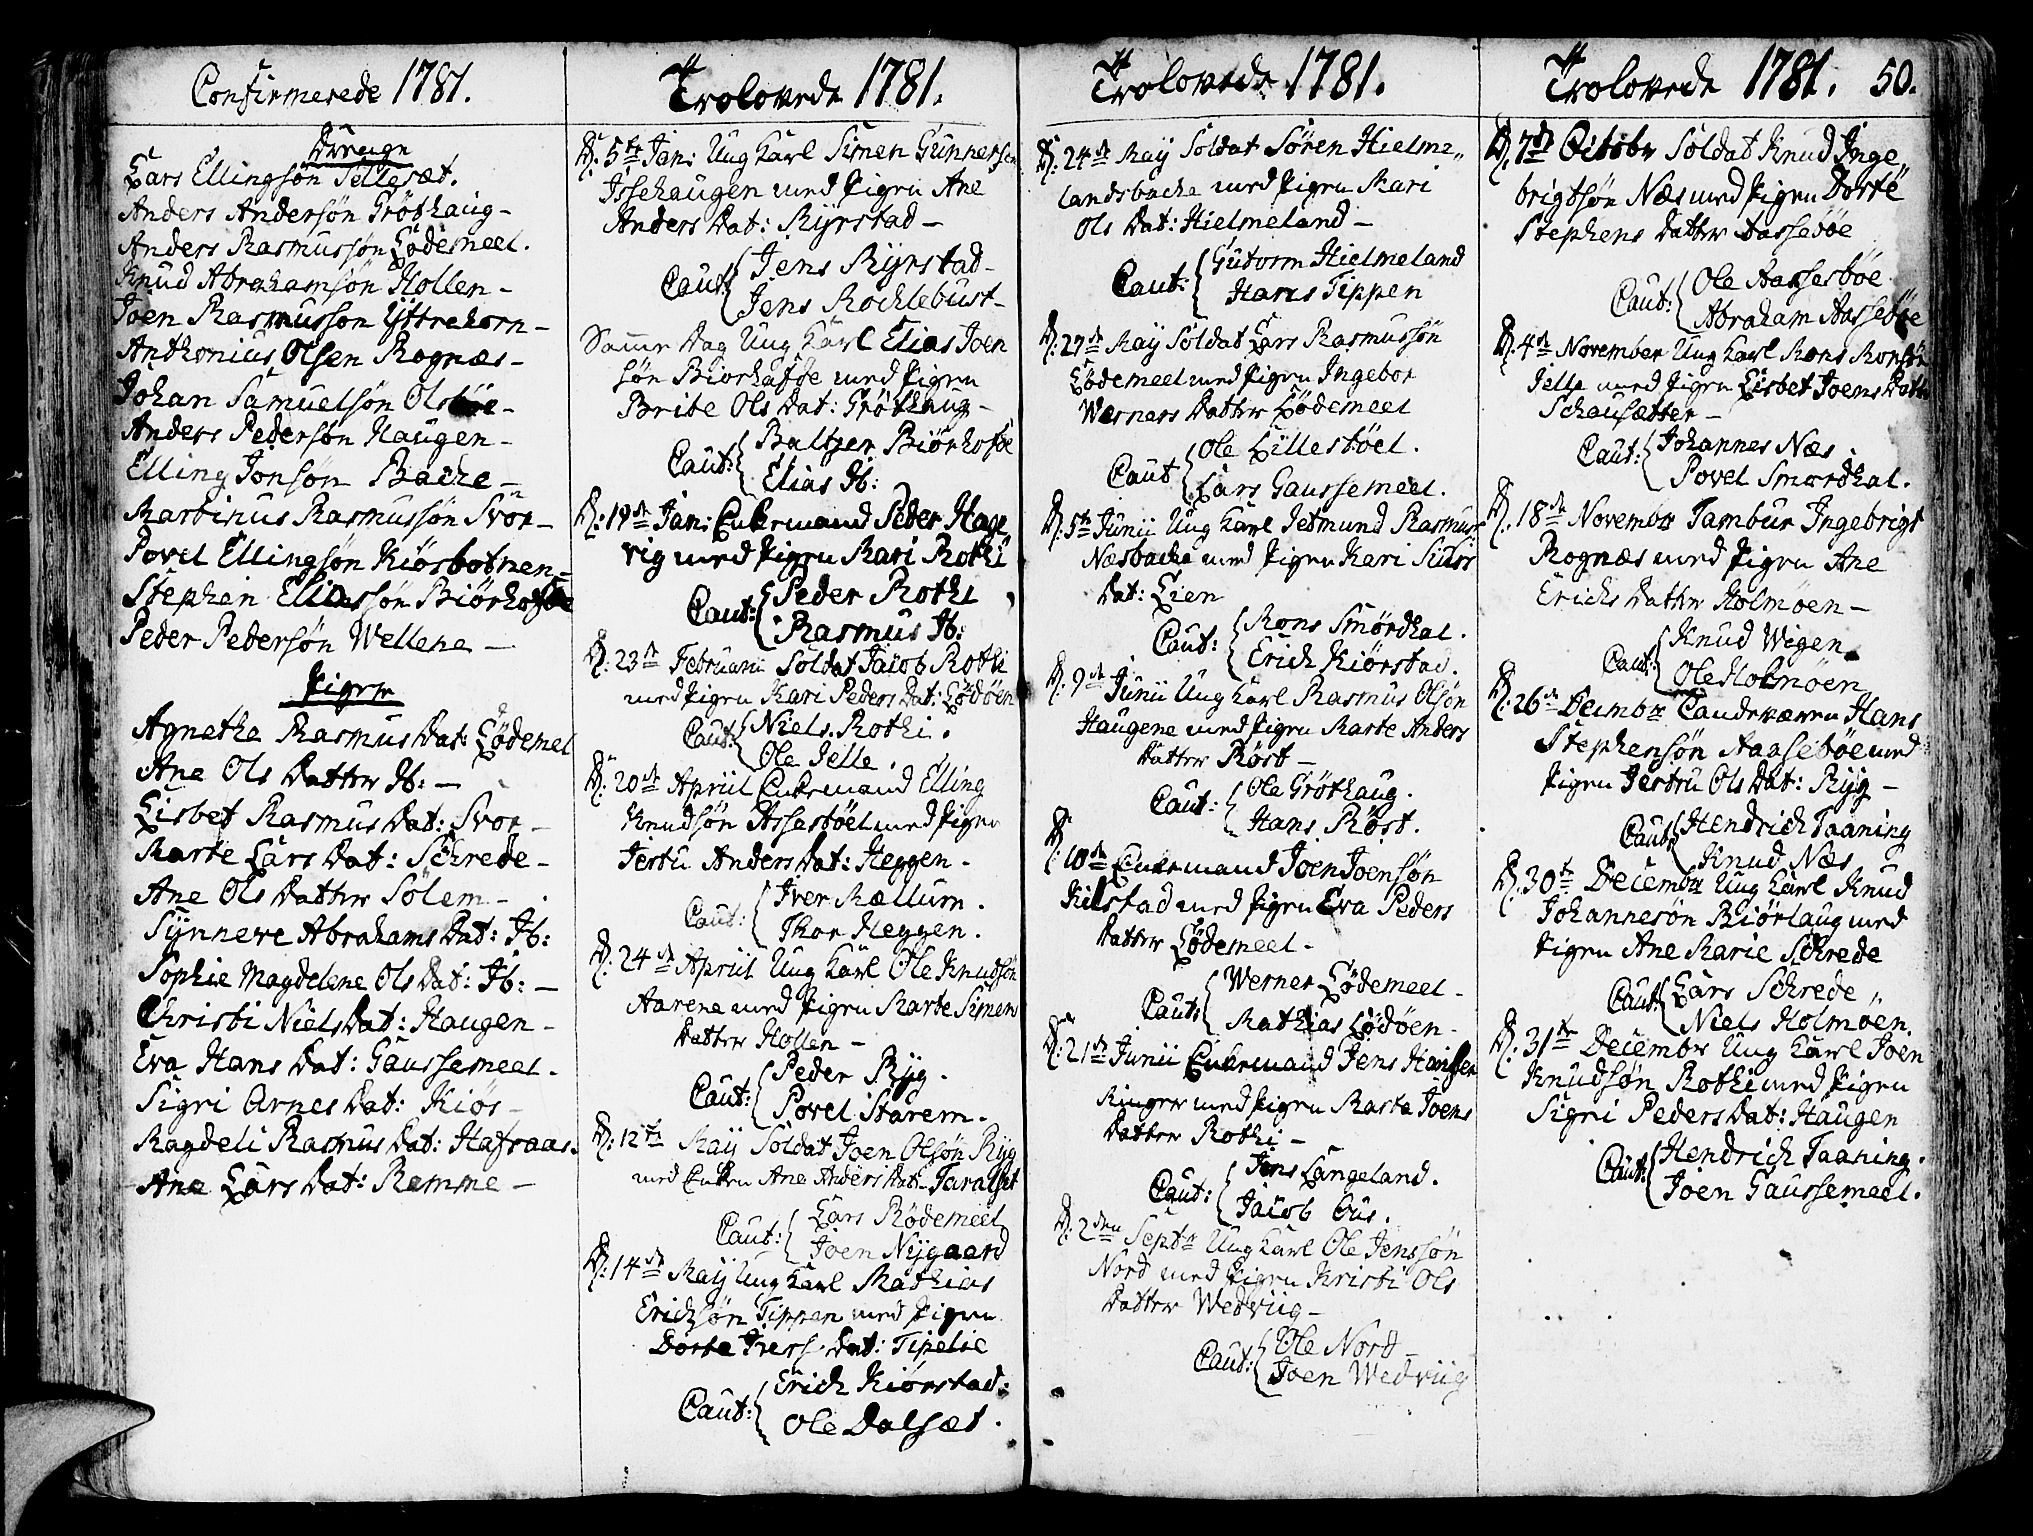 Confirmerede 1781.
Drenge
Lars Ellingsön Sellesæt.
Anders Andersön Gröthaug -
Anders Rasmussön Lödemeel.
Knud Abrahamsön Hollen -
Joen Rasmusson Yttrehorn -
Anthonius Olsen Rognæs -
Johan Samuelsön Olsböe -
Anders Pedersön Haugen -
Elling Jonsön Bache -
Martinus Rasmussön Svor -
Povel Ellingsön Kiösbotnen -
Stephen Eliassön Biörhofde
Peder Pedersön Wellene -
Piger
Agnethe Rasmus Dat: Lödemel
Ane Ols Datter Ib: -
Lisbet Rasmus Dat: Svor -
Marte Lars Dat: Schrede -
Ane Ols Datter Sölem -
Synneve Abrahams Dat: Ib:
Sophie Magdelene Ols Dat: Ib: -
Christi Niels Dat: Haugen -
Eva Hans Dat: Gaussemeel.
Sigri Arnes Dat: Kiös -
Magdeli Rasmus Dat: Hafraas.
Ane Lars Dat: Remme -
Trolovede 1781.
D: 5te Jan: Ung Karl Simen Gunnersen
Issehaugen med Pigen Ane
Anders Dat: Ryrstad -
Caut: Jens Ryrstad -
Jens Rochlebust -
Samme Dag Ung Karl Elias Joen
sön Biorhafde med Pigen
Brite Ols Dat: Gröthaug -
Caut: Baltzer Biörhofde
Elias Ib:
D: 19de Jan: Enkemand Peder Hage
vig med Pigen Mari Rothi
Caut: Peder Rothi
Rasmus Ib:
D: 23de Februarii Soldat Jacob Rothi
med Pigen Kari Peders Dat: Lödöen
Caut: Niels Rothi.
Ole Jelle.
D: 20de Apriil Enkemand Elling
Knudsön Assesböel med Pigen
Jertru Anders Dat: Heggen -
Caut: Iver Mællum.
Thor Heggen.
D: 24de Apriil Ung Karl Ole Knudsön
Aarene med Pigen Marte Simens
Datter Hollen -
Caut: Peder Ryg.
Povel Starem.
D: 12te Maij Soldat Joen Olsön Ryg
med Enken Ane Anders Dat: Taralset
Caut: Lars Rödemeel
Joen Nygaard
D: 14de Maij Ung Karl Mathias
Erichsön Tippen med Pigen
Dorte Ivers Dat: Tipelie
Caut: Erich Kiörstad:
Ole Dalsæt.
Trolovede 1781.
D: 24de Maij Soldat Sören Hielme„
landsbacke med Pigen Mari
Ols Dat: Hielmeland -
Caut: Gutorm Hielmeland
Hans Tippen
D: 27de Maij Soldat Lars Rasmussön
Lödemeel med Pigen Ingebor
Werners Datter Lödemeel
Caut: Ole Lillesböel.
Lars Gaussemeel.
D: 5te Junii Ung Karl Jetmund Rasmus
Næsbacke med Pigen Kari Siurs
Dat: Lien
Caut: Rons Smördhal.
Erich Kiörstad.
D: 9de Junii Ung Karl Rasmus Olsön
Haugene med Pigen Marte Anders
Datter Röst -
Caut: Ole Gröthaug.
Hans Röst.
D: 10de Enkemand Joen Joensön
Kilstad med Pigen Eva Peders
Datter Lödemeel -
Caut: Werner Lödemeel -
Mathias Lödöen -
D: 21de Junii Enkemand Jens Hansen
Ringer med Pigen Marta Joens
Datter Rothi -
Caut: Jens Langeland.
Jacob Aus.
D: 2den Septr Ung Karl Ole Jenssön
Nord med Pigen Kristi Ols
Datter Wedviig -
Caut: Ole Nord -
Joen Wedviig
Trolovede 1781. 50.
D: 7de Octobr Soldat Knud Inge„
brigtsön Næs med Pigen Dorte
Stephens Datter Aassebøe
Caut: Ole Aassesböe
Abraham Aasseböe
D: 4de November Ung Karl Rons Ronsön
Jelle med Pigen Lisbet Joens Datter
Schausætter -
Caut: Johannes Næs
Povel Smordhal.
D: 18de Novembr Tambur Ingebrigt
Rognæs med Pigen Ane
Erichs Datter Holmöen -
Caut: Knud Wigen
Ole Holmöen
D: 26de Decmbr Landeværn Hans
Stephensön Aaseböe med
Pigen Jertru Ols Dat: Ryg -
Caut: Hendrich Taaning
Knud Næs
D: 30te Decembr Ung Karl Knud
Johannesön Biörlaug med
Pigen Ane Marie Schrede
Caut: Lars Schrede
Niels Holmöen.
D: 31te Decembr Ung Karl Joen
Knudsön Rothi med Pigen
Sigri Peders Dat: Haugen
Caut: Hendrich Taaning.
Joen Gaussemeel.